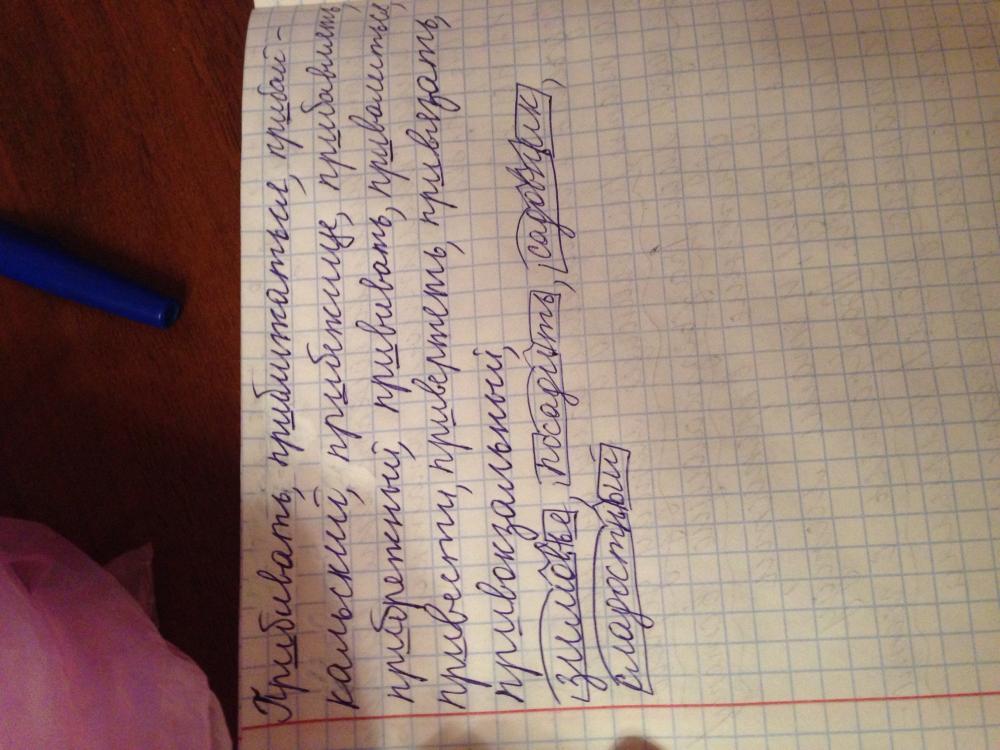 Прибивать, приближаться, прибай-
кальский, прибежище, прибавлять,
прибрежный, прививать, привалиться,
привести, привертеть, привязать,
привокзальный,
зимовье, посадить, садовщик,
Сладостный